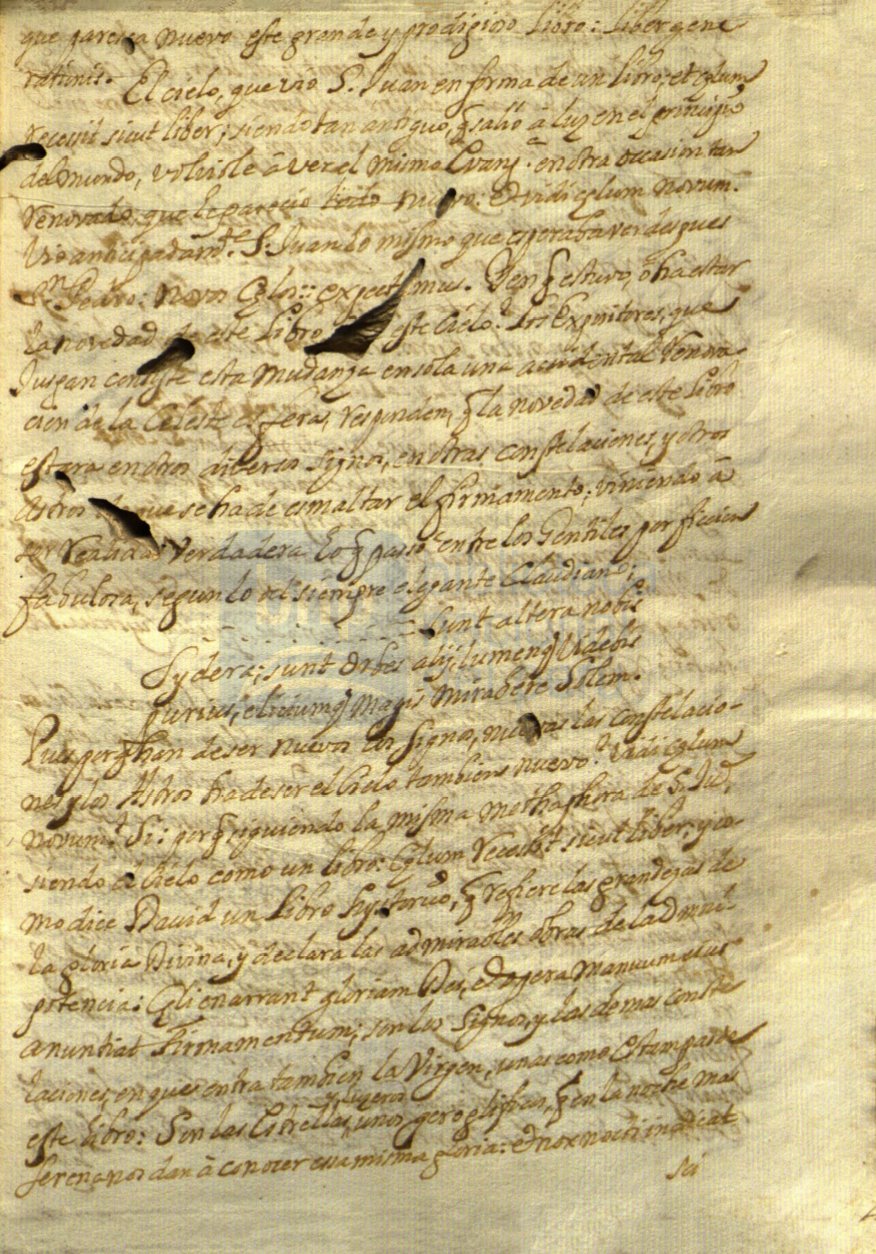 que paresca nuevo este grande y prodigioso libro: Liber gene
rationis. El cielo, que vio S. Juan en forma de un libro; et cęlum
recessit sicut liber; siendo tan antiguo, q̃ salió â luz en el principio
del mundo, volviole â ver el mismo Evang.ª en otra occasion tan
renovado, que le pareció todo nuevo: Et vidi cęlum novum.
Vio anticipadam.te S. Juan lo mismo que esperaba ver despues
S.n Pedro: novos Cęlos:: expectamus. Y en q̃ estuvo, ô ha estar
la novedad de este libro este Cielo? Los Expositores, que
Juzgan consiste esta mudanza en sola una accidental renova-
cion de la Celeste esfera, responden, q̃ la novedad de este libro
estara en otros diversos signos, en otras constelaciones, y otros
Astros de que se ha de esmaltar el firmamento; viniendo â
ser realidad verdadera lo q̃ passó entre los Gentiles por ficcion
fabulosa, segun lo del siempre elegante Claudiano;
Sunt altera nobis
Sydera; sunt Orbes alij, lumenq̃ videbis
purius, elisiumq̃ magis mirabere Solem.
Pues porq̃ han de ser nuevos los signos, nuevas las constelacio-
nes y los Astros ha de ser el Cielo tambien nuevo? Vidi cęlum
novum? Si: porq̃ siguiendo la misma methaphora de S. Juã,
siendo el Cielo como un libro: Cęlum recessit sicut liber; y co-
mo dice David un libro hystorico, q̃ refiere las grandezas de
la gloria Divina, y declara las admirables obras de la Omni-
potencia: Cęli enarrant gloriam Dei, et opera manuum eius
anuntiat Firmamentum; son los Signos, y las demas conste-
laciones, en que entra tambien la Virgen, unas como Estampas de
este libro: Son las Estrellas, y luzeros unos geroglificos, q̃ en la noche mas
serena nos dan â conocer essa misma gloria: et nox nocti indicat
sci